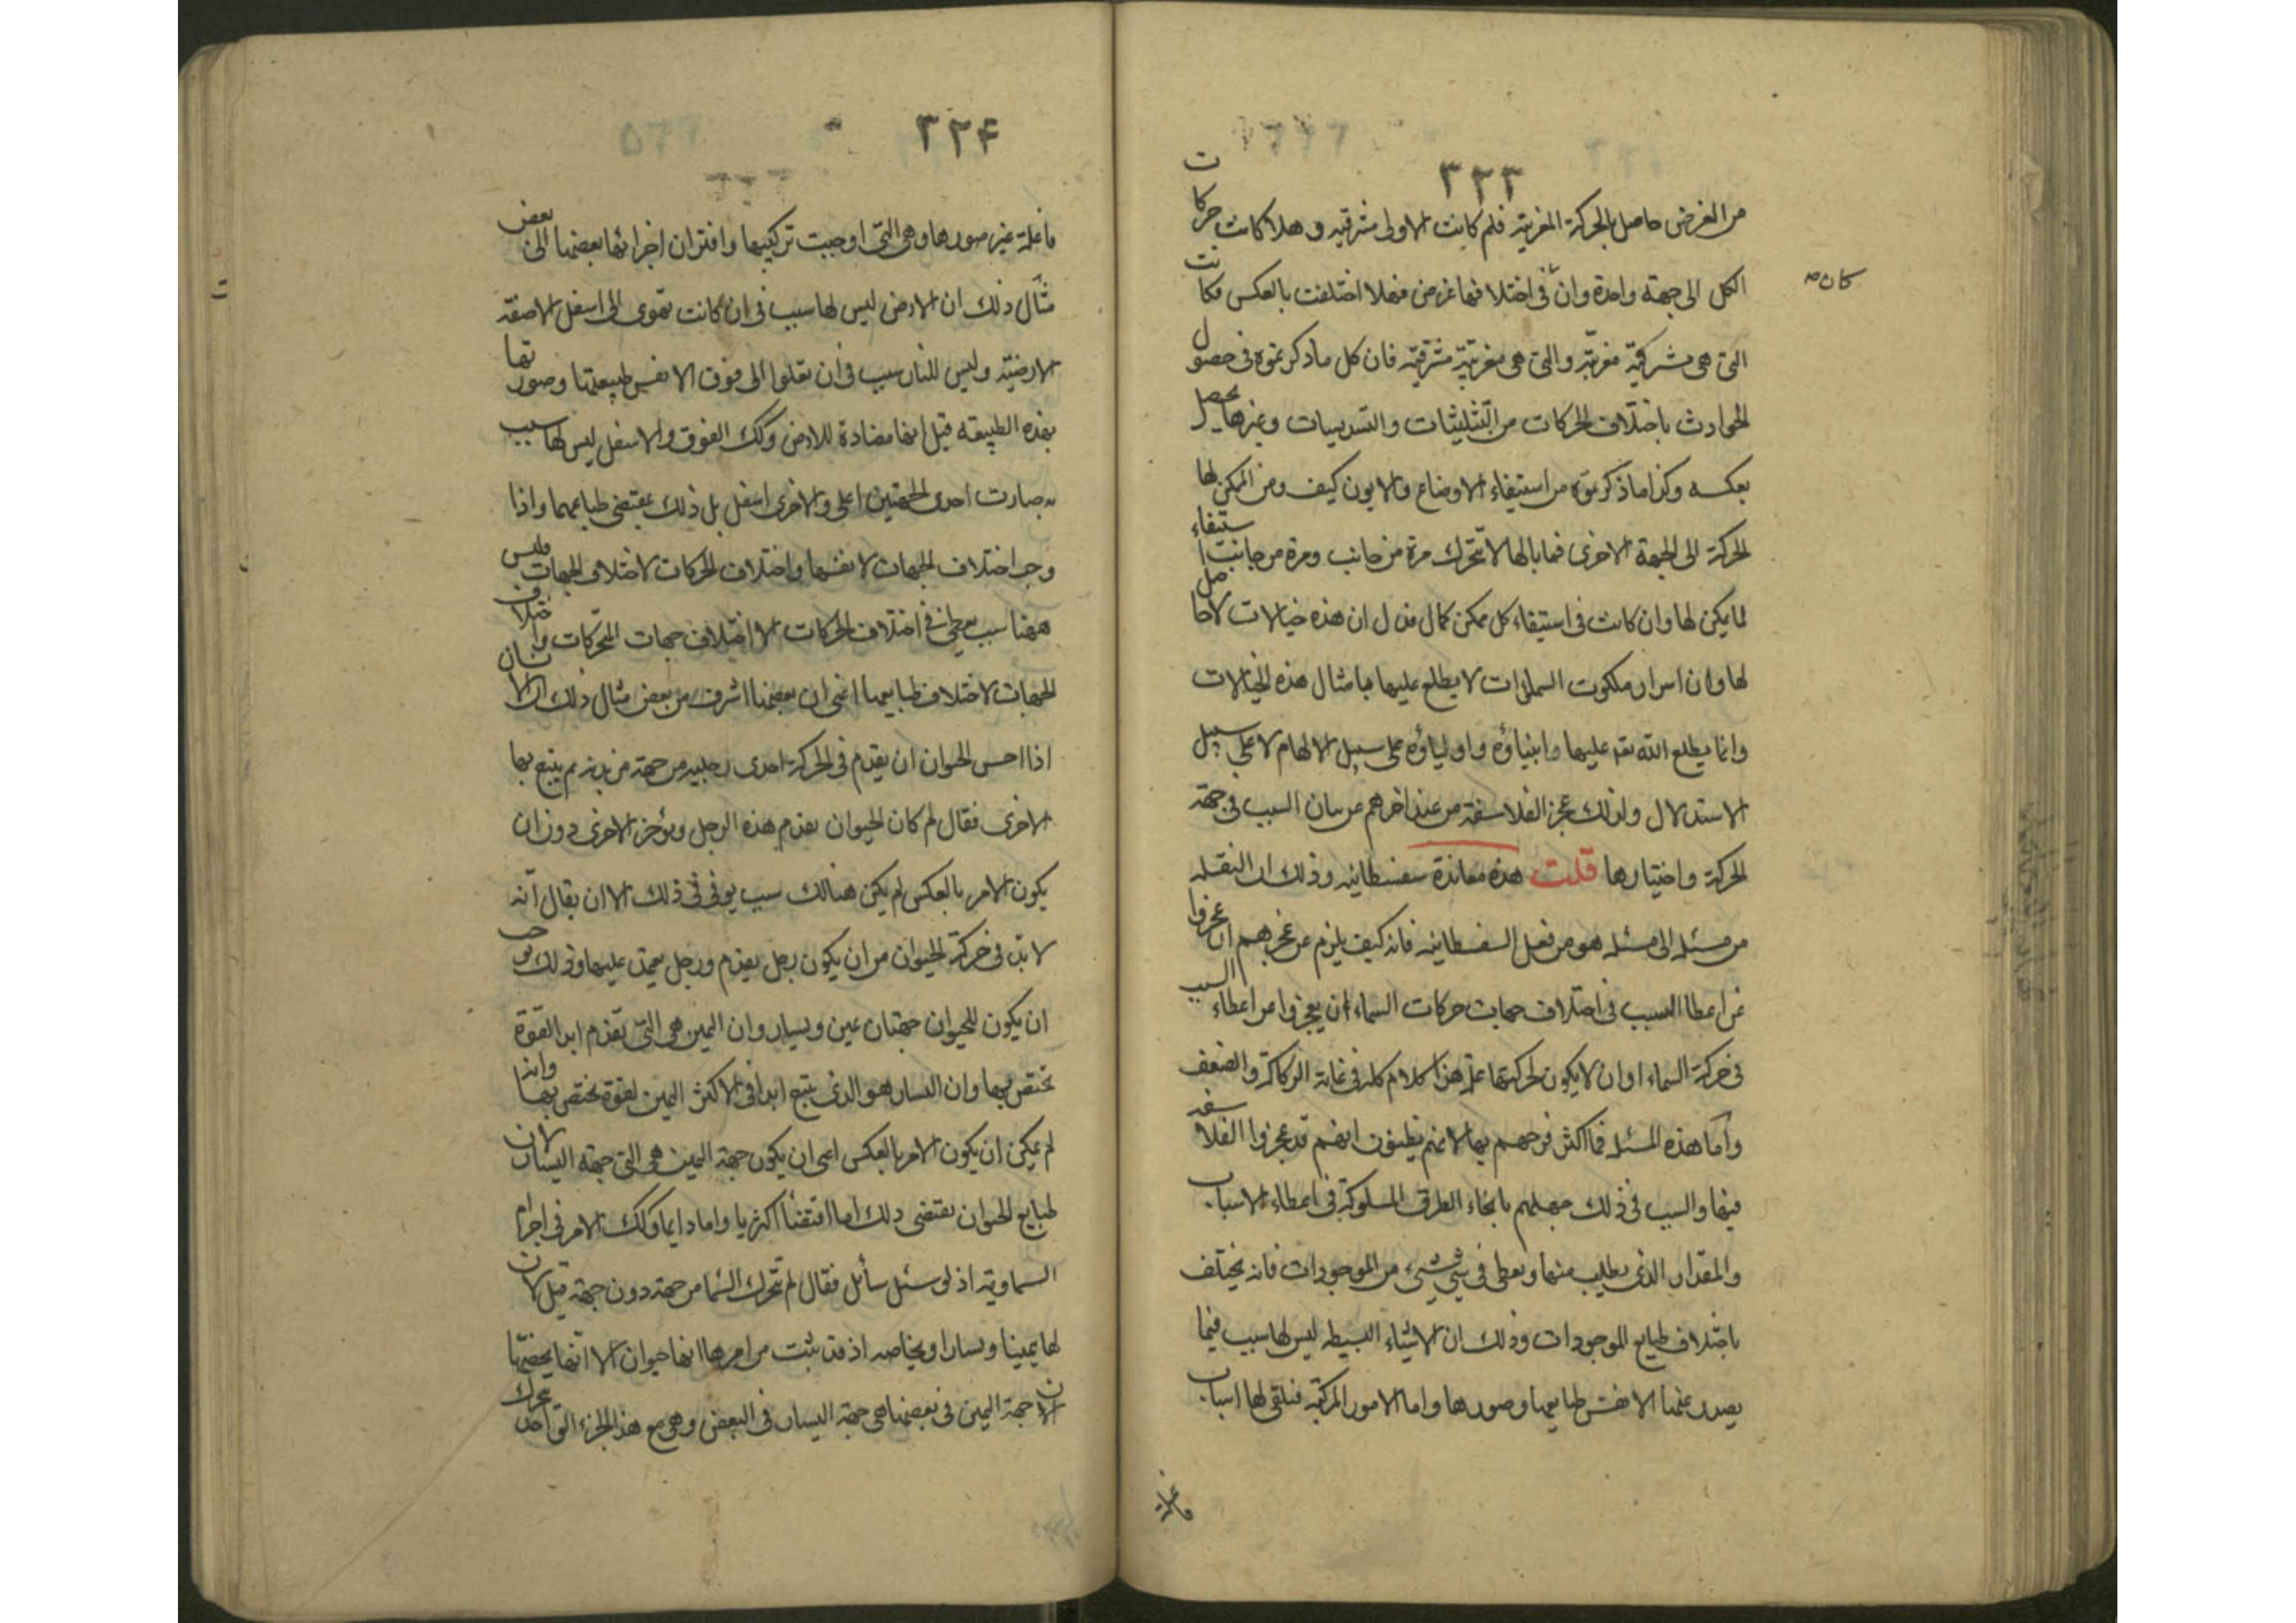 ٣٢٣
من الغرض حاصل بالحركة المغربية فلم كانت الاولى مشرقيه وهلا كانت حركات
الكل الى جهة واحدة وان فى اختلافها غرض فهلا اختلفت بالعكس فكانت
كان
التى هى مشرقية مغربية والتى هى مغربية مشرقية فان كل ما ذكرتموه فى حصول
الحوادث باختلاف الحركات من التثليثات والتسديسات وغيرها يحصل
بعكسه وكذا ما ذكرتموه من استيفاء الاوضاع والايون كيف ومن الممكن لها
الحركة الى الجهة الاخرى فما بالها لا تتحرك مرة من جانب ومرة من جانب استيفاء
لما يمكن لها وان كانت فى استيفاء كل ممكن كمال فدل ان هذه خيالات لا حاصل
لها وان اسرار ملكوت السموات لا يطلع عليها بامثال هذه الخيالات
وانما يطلع الله تعه عليها وانبياؤه واولياؤه على سبيل الالهام لا على سبيل
الاستدلال ولذلك عجز الفلاسفة من عند اخرهم عن بيان السبب فى جهة
الحركة واختيارها قلت هذه معاندة سفسطانيه وذلك ان النقله
من مسئله الى مسئله هو من فعل السفسطانيه فانه كيف يلزم عن عجزهم ان عجزوا
عن اعطا السبب فى اختلاف جهات حركات السماء ان يعجزوا عن اعطاء السبب
فى حركة السماء او ان لا يكون لحركتها علة هذا كلام كله فى غاية الركاكة والضعف
واما هذه المسئله فما اكثر فرحهم بها لانهم يظنون انهم قد عجزوا الفلاسفه
فيها والسبب فى ذلك جهلهم بانحاء الطرق المسلوكة فى اعطاء الاسباب
والمقدار الذى يطلب منها ويعطى فى شئ شئ من الموجودات فانه يختلف
باختلاف طبايع الموجودات وذلك ان الاشياء البسيطه ليس لها سبب فيما
يصدر عنها الا نفس طبايعها وصورها واما الامور المركبة فتلقى لها اسباب
فاعلة
٣٢۴
فاعلة غير صورها وهى التى اوجبت تركيبها واقتران اجزائها بعضها الى بعض
مثال ذلك ان الارض ليس لها سبب فى ان كانت تهوى الى اسفل الا صفة
الارضية وليس للنار سبب فى ان تعلوا الى فوق الا نفس طبيعتها وصورتها
بهذه الطبيعه قيل انها مضادة للارض وكك الفوق والاسفل ليس لها سبب
به صارت احدى الجهتين اعلى والاخرى اسفل بل ذلك بمقتضى طباعهما واذا
وجب اختلاف الجهات لانفسها واختلاف الحركات لاختلاف الجهات فليس
ههنا سبب يعطى فى اختلاف الحركات الا اختلاف جهات المتحركات واختلاف
الجهات لاختلاف طبايعها اعنى ان بعضها اشرف من بعض مثال ذلك ان الانسان
اذا احس الحيوان ان يقدم فى الحركة احدى رجليه من جهة من بدنه ثم يتبع بها
الاخرى فقال لم كان الحيوان يقدم هذه الرجل ويؤخر الاخرى دون ان
يكون الامر بالعكس لم يكن هنالك سبب يوفى فى ذلك الا ان يقال انه
لا بد فى حركة الحيوان من ان يكون رجل يقدم ورجل يعتمد عليها وذلك يوجب
ان يكون للحيوان جهتان يمين ويسار وان اليمين هى التى تقدم ابدا لقوة
تختص بها وان اليسار هو الذى يتبع ابدا فى الاكثر اليمين لقوة تختص بها وانه
لم يمكن ان يكون الامر بالعكس اعنى ان يكون جهة اليمين هى التى جهة اليسار لان
طبايع الحيوان تقتضى ذلك اما اقتضاء اكثريا واما دايما وكك الامر فى اجرام
السماوية اذ لو سئل سائل فقال لم تتحرك السما من جهة دون جهة قيل لان
لها يمينا ويسارا وبخاصه اذ قد ثبت من امرها انها حيوان الا انها يخصها
ان جهة اليمين فى بعضها هى جهة اليسار فى البعض وهى مع هذا الجزء الواحد تتحرك